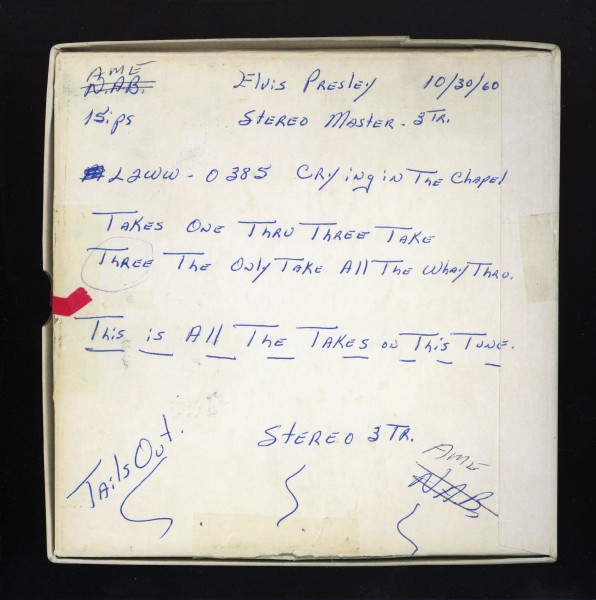 AME
N.A.B. Elvis Presley 10/30/60
15ips Stereo Master - 3 Tr.
L2WW - 0385 Crying in The Chapel
Takes One Thru Three Take
Three The Only Take All The Whay Thru.
This is All The Takes on This Tune.
Tails Out.
Stereo 3 Tr.
AME
NAB